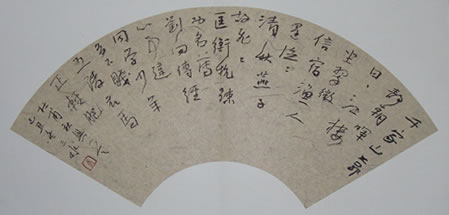 千家山郭
靜朝暉
日日江樓
坐翠微
信宿漁人
還泛泛
清秋燕子
故飛飛
匡衡抗疏
功名薄
劉向傳經
心事違
同學少年
多不賤
五陵衣馬
自輕肥
杜甫秋興
己丑